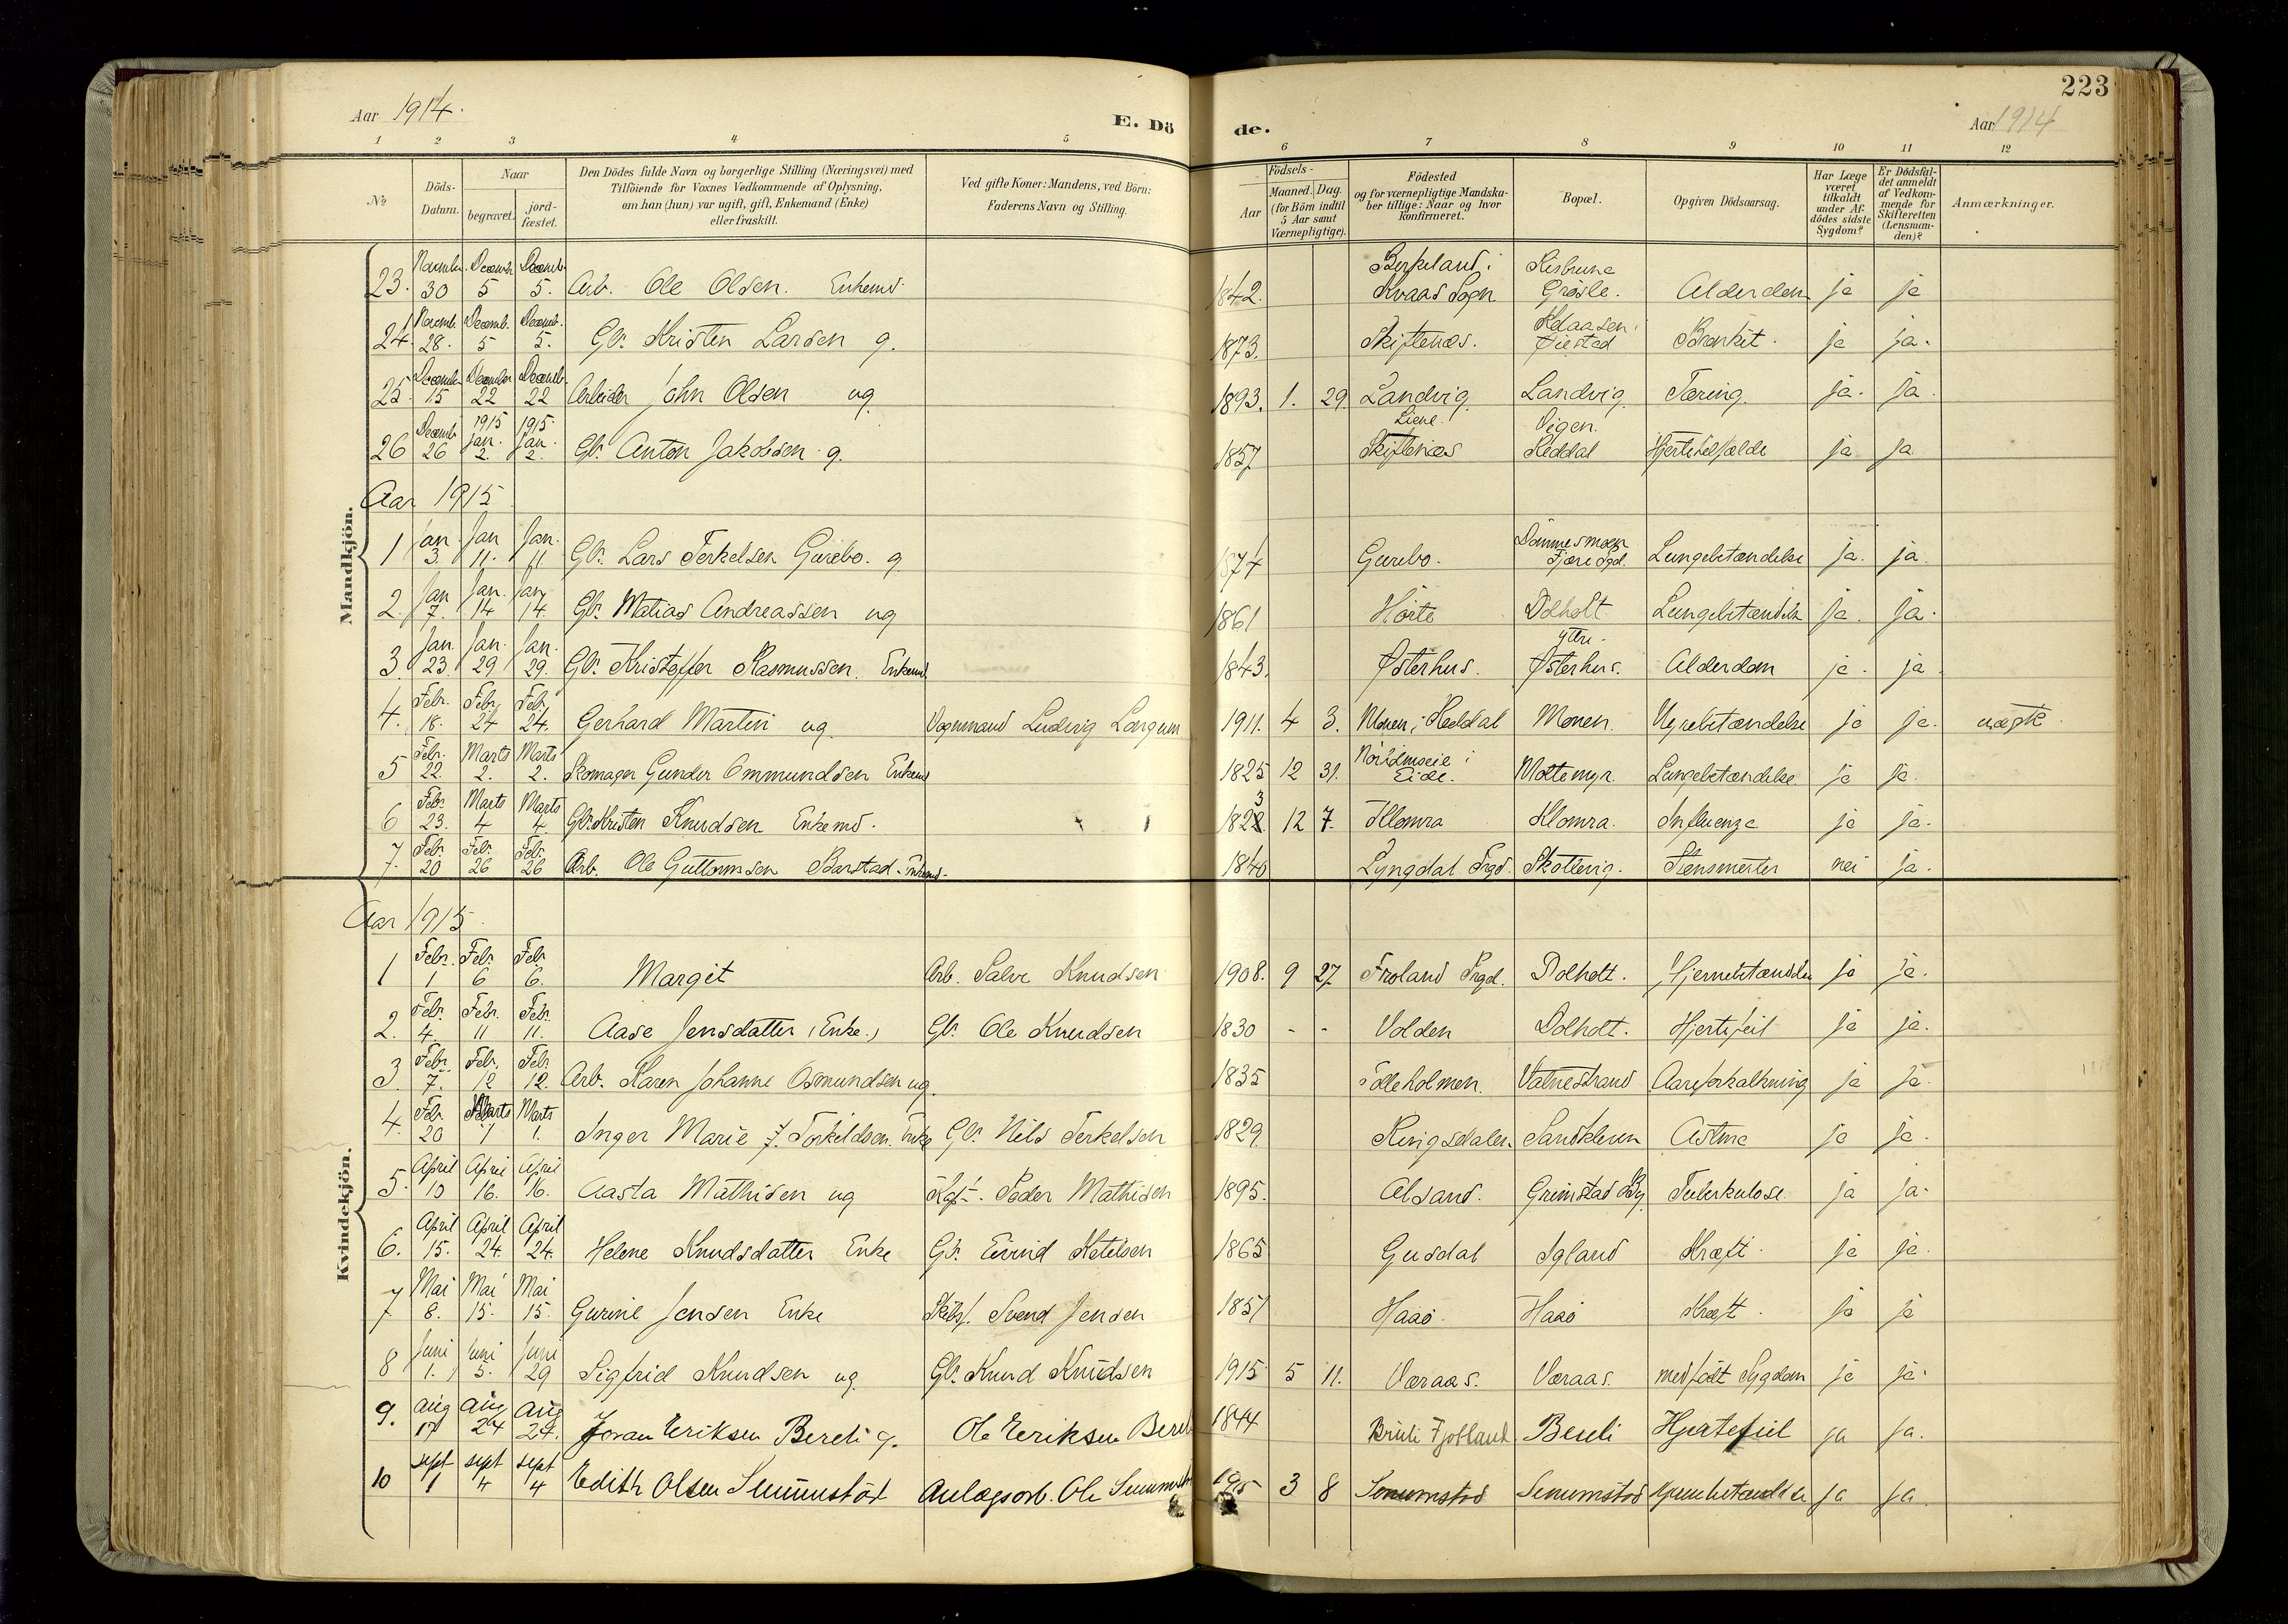 223
Aar 1914. E. Dö de. Aar 1914
1 2 3 4 5 6 7 8 9 10 11 12
№ Döds-Datum. Naar begravet. jord-fæstet. Den Dödes fulde Navn og borgerlige Stilling (Næringsvei) med Tilföiende for Voxnes Vedkommende af Oplysning, om han (hun) var ugift, gift, Enkemand (Enke) eller fraskilt. Ved gifte Koner: Mandens, ved Börn: Faderens Navn og Stilling. Födsels- Aar Maaned. Dag. (for Börn indtil 5 Aar samt Værnepligtige). Födested og for værnepligtige Mandskaber tillige: Naar og hvor konfirmeret. Bopæl. Opgiven Dödsaarsag. Har Læge været tilkaldt under Afdödes sidste Sygdom? Er Dödsfaldet anmeldt af Vedkommende for Skifteretten (Lensmanden)? Anmærkninger.
Mandkjön.
23. Novemb. 30 Decemb. 5 Decemb. 5. Arb. Ole Olsen. Enkemd. 1842. Birkeland i Kvaas Sogn Grøsle. Alderdom ja ja
24. Novemb. 28. Decemb. 5 Decemb. 5. Gbr. Kristen Larsen g. 1873. Skiftenes. Øiestad Brænkit. ja ja.
25. Decemb. 15 December 22 Decemb. 22 Arbeider John Olsen ug 1893. 1. 29. Landvig Landvig. Tæring. ja. ja.
26 Decemb 26 1915 Jan. 2. 1915 Jan. 2. Gbr. Anton Jakobsen g. 1857 Liene. Skiftenes Vigen. Heddal Hjertetilfælde ja ja
Aar 1915
1 Jan 3. Jan 11. Jan. 11 Gbr. Lars Terkelsen Gurebo. g 1874 Gurebo. Dømmesmoen Fjære Sgd. Lungebetændelse ja. ja.
2. Jan 7. Jan. 14 Jan. 14. Gbr. Matias Andreassen ug 1861 Hørte Dolholt Lungebetændelse ja. ja.
3. Jan. 23. Jan. 29 Jan. 29. Gbr. Kristoffer Rasmussen. Enkemd. 1843. Østerhus. Ytre. Østerhus. Alderdom ja. ja
4. Febr. 18. Feb. 24 Feb. 24. Gerhard Martin ug. Vognmand Ludvig Langum 1911. 4 3. Monen i Heddal Monen. Nyrebetændelse ja ja. uægte
5 Feb. 22. Marts 2. Marts 2. Skomager Gunder Ommundsen Enkemd 1825 12 31. Eide. Moltemyr. Lungebetændelse ja ja.
6 Feb. 23. Marts 4 Marts 4. Gbr. Kristen Knudsen Enkemd. 1823 12 7. Klomra Klomra. Influenza ja ja.
7. Feb. 20 Feb. 26 Feb. 26 Arb. Ole Guttormsen Barstad. Enkemd. 1840 Lyngdal Prgd. Skottevig. Stensmerter nei ja.
Kvindekjön.
Aar 1915.
1 Febr. 1 Feb. 6 Feb. 6. Margit Arb. Salve Knudsen 1908. 9 27. Froland Prgd. Dolholt. Hjernebetændelse ja ja.
2. Feb. 4. Febr. 11 Feb. 11. Aase Jensdatter (Enke.) Gbr. Ole Knudsen 1830 - - Volden Dolholt. Hjertefeil ja ja.
3. Febr. 7. Feb. 12 Feb. 12. Arb. Karen Johanne Osmundsen ug. 1835 Tolleholmen. Vatnestrand Aareforkalkning ja ja.
4. Feb. 20 Marts 1 Marts 1. Inger Marie J. Torkildsen. Enke Gbr. Nils Terkelsen 1829. Ringsdalen. Sandkleven Astma ja ja.
5. April 10 April 16. April 16. Aasta Mathisen ug Peder Mathisen 1895. Alsand. Grimstad By. Tuberkulose. ja ja.
6. April 15. April 24. April 24. Helene Knudsdatter Enke Gbr. Eivind Ketelsen 1865 Gusdal Igland Kræft. ja ja.
7 Mai 8. Mai 15. Mai 15. Gurine Jensen Enke Skibsf. Svend Jensen 1851 Haaø. Haaø Kræft. ja ja
8 Juni 1. Juni 5. Juni 29 Sigfrid Knudsen ug. Gbr. Knud Knudsen 1915. 5 11. Væraas. Væraas. medfødt Sygdom ja ja.
9. aug 17 aug 24 aug 24. Joran Eriksen Bereli g. Ole Eriksen Bereli 1844 Fjotland Beuli Hjertefeil ja ja.
10 sept 1 sept 4 sept 4 Edith Olsen Senumstød Anlægsarb. Ole Senumstød 1915 3 8 Senumstød Senumstød ja ja.